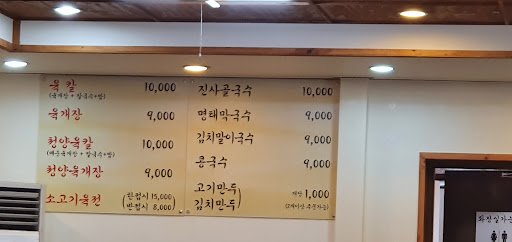 육칼 10,000
(육개장 + 칼국수+밥)
육개장 9,000
청양육칼 10,000
(매운육개장 + 칼국수+밥)
청양육개장 9,000
소고기육전 (한접시 15,000
반접시 8,000)
진사골국수 10,000
명태막국수 9,000
김치말이국수 9,000
콩국수 9,000
고기만두
김치만두) 개당 1,000
(2개이상 주문가능)
화장실가는